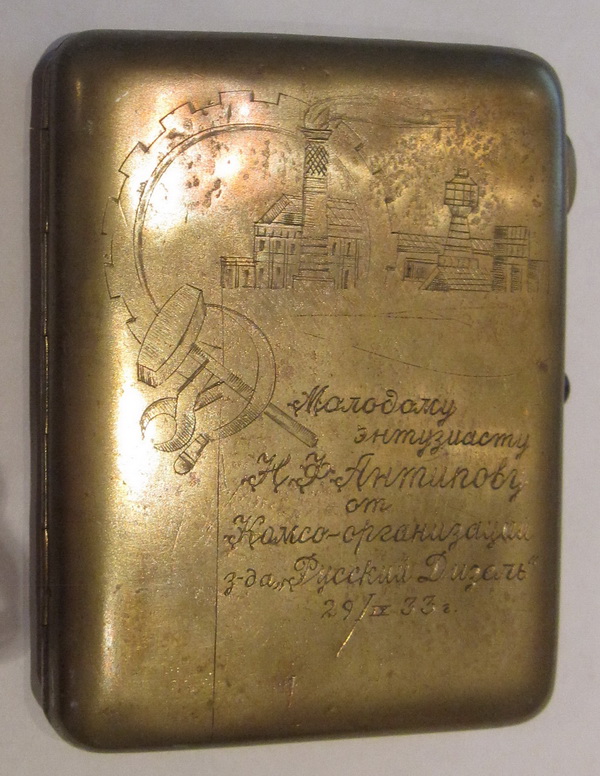 Молодому
энтузиасту
Н. Ф. Антипову
от
Комсо-организации
з-да „Русский Дизель"
29/IX 33 г.